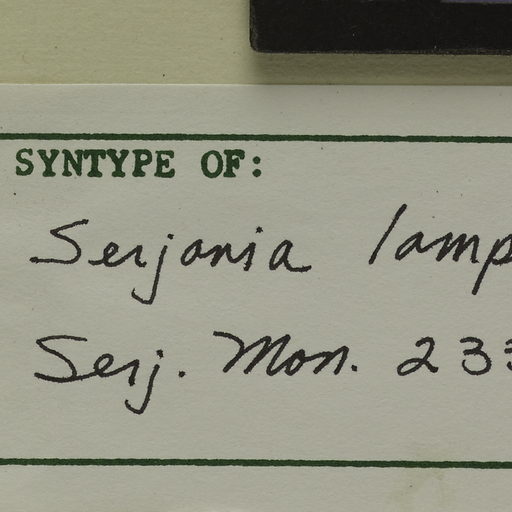 SYNTYPE OF:
Serjania lamp
Serj. Mon. 233